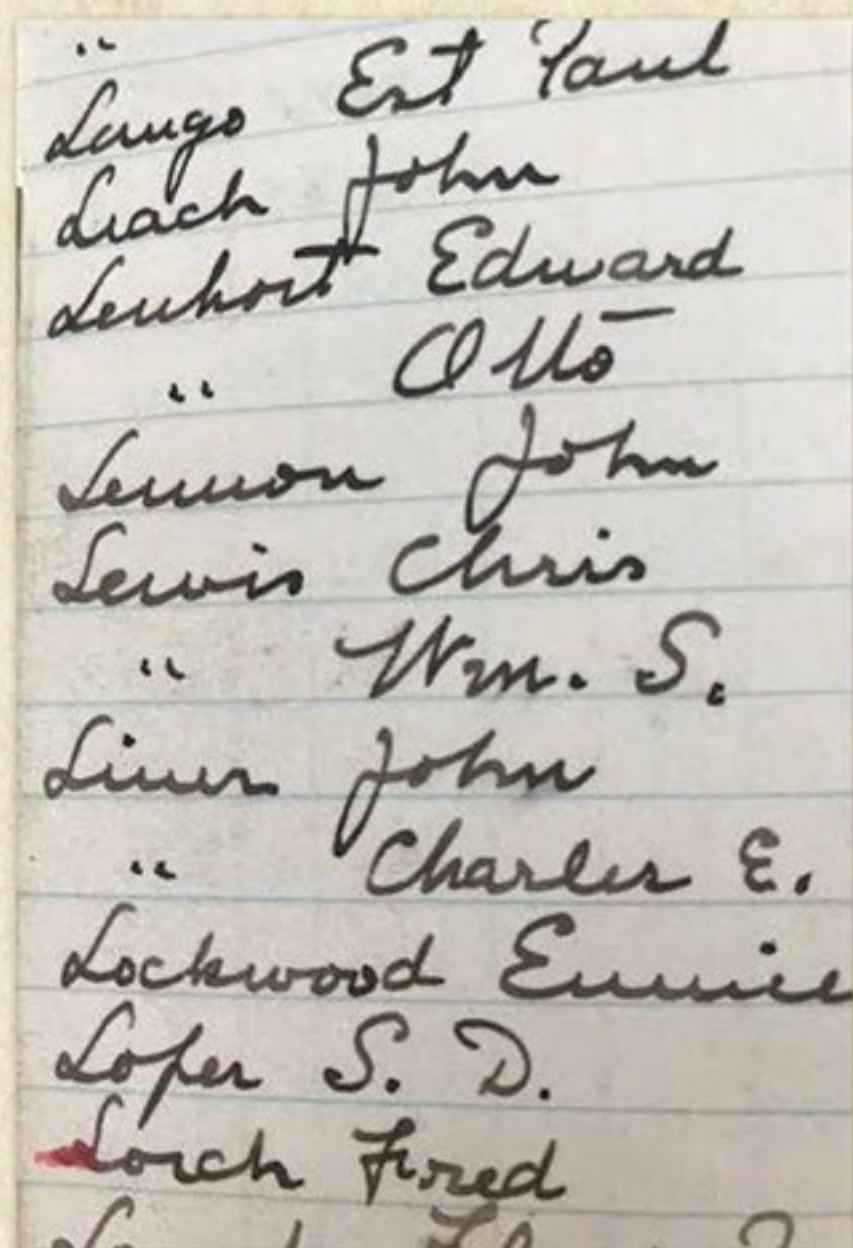 "
Laugo Est Paul
Leach John
Lenhort Edward
" Otto
Lennon John
Lewis Chris
" Wm. S.
Liner John
" Charles E.
Lockwood Eunice
Loper S. D.
Lorch Fred